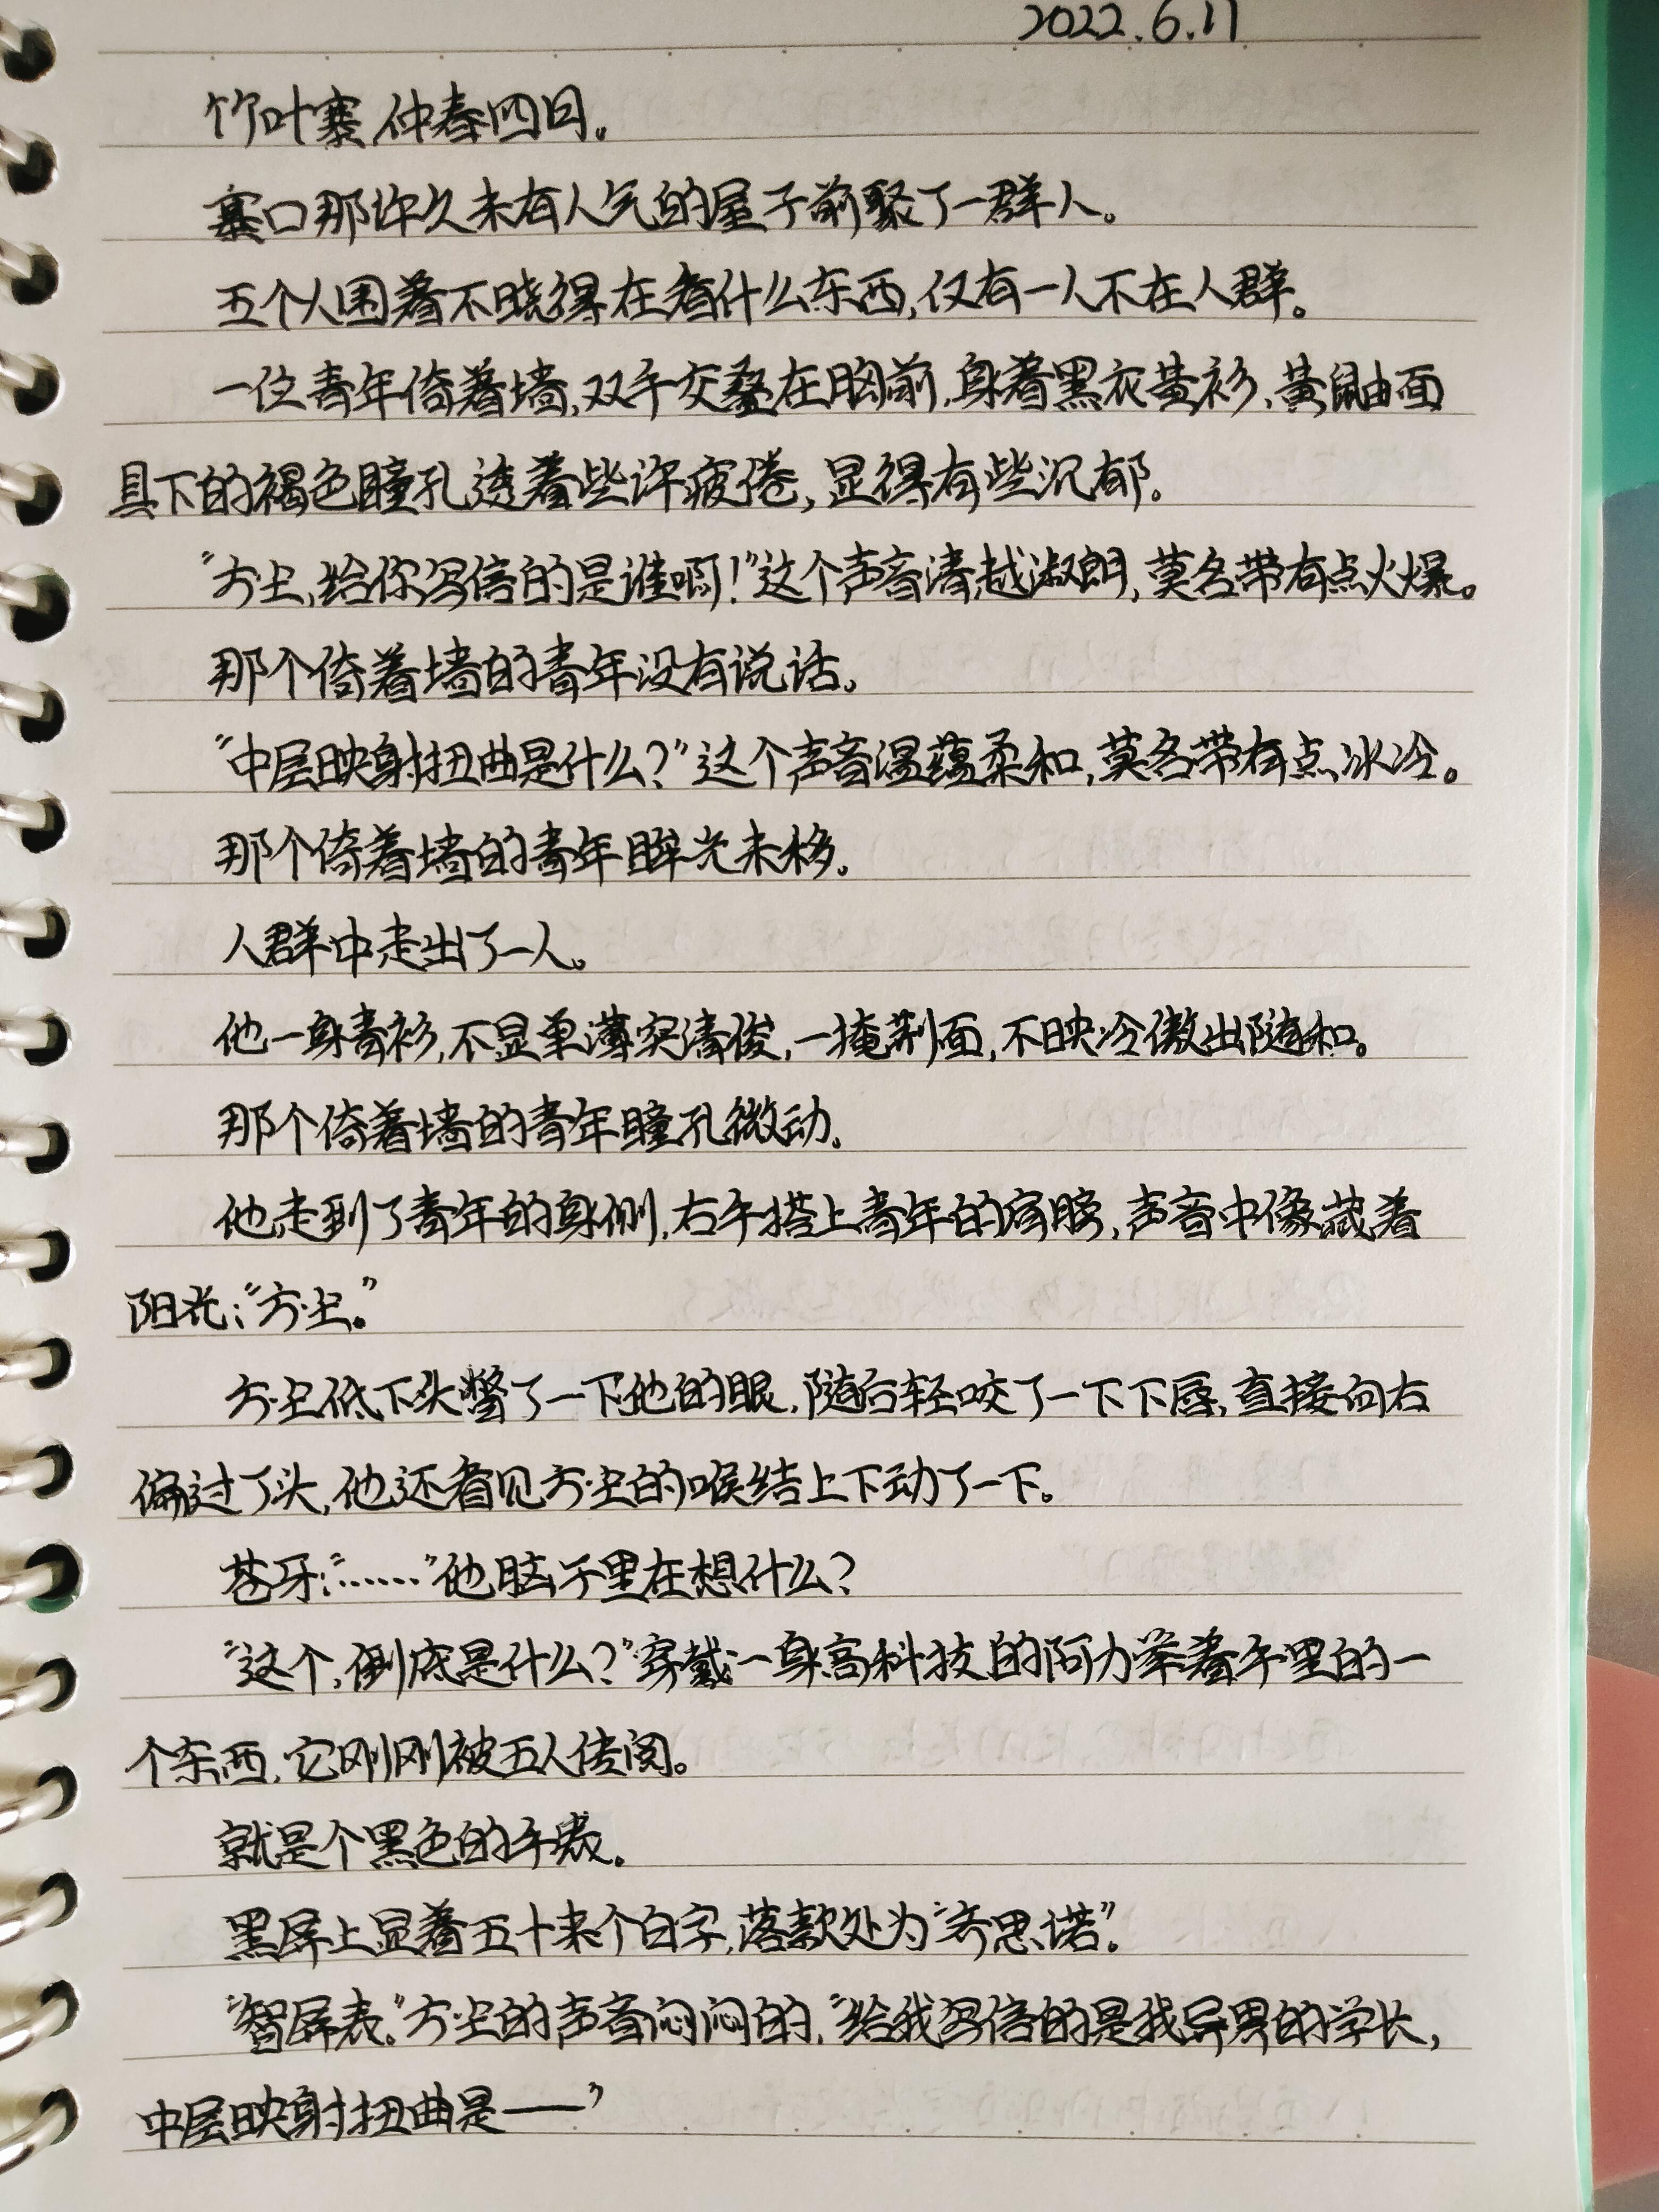 2022.6.11
竹叶寨,仲春四日。
寨口那许久未有人气的屋子前聚了一群人。
五个人围着不晓得在看什么东西,仅有一人不在人群。
一位青年倚着墙,双手交叠在胸前,身着黑衣黄衫,黄鼬面
具下的褐色瞳孔透着些许疲倦,显得有些沉郁。
“方尘,给你写信的是谁啊!”这个声音清越淑朗,莫名带有点火爆。
那个倚着墙的青年没有说话。
“中层映射扭曲是什么?”这个声音温蕴柔和,莫名带有点冰冷。
那个倚着墙的青年眸光未移。
人群中走出了一人。
他一身青衫,不显单薄突清俊,一掩荆面,不映冷傲出随和。
那个倚着墙的青年瞳孔微动。
他走到了青年的身侧,右手搭上青年的肩膀,声音中像藏着
阳光:“方尘。”
方尘低下头瞥了一下他的眼,随后轻咬了一下下唇,直接向右
偏过了头,他还看见方尘的喉结上下动了一下。
苍牙:“……”他脑子里在想什么?
“这个,倒底是什么?”穿戴一身高科技的阿力举着手里的一
个东西,它刚刚被五人传阅。
就是个黑色的手表。
黑屏上显着五十来个白字,落款处为“乔思诺”。
“智屏表。”方尘的声音闷闷的,“给我写信的是我异界的学长,
中层映射扭曲是——”